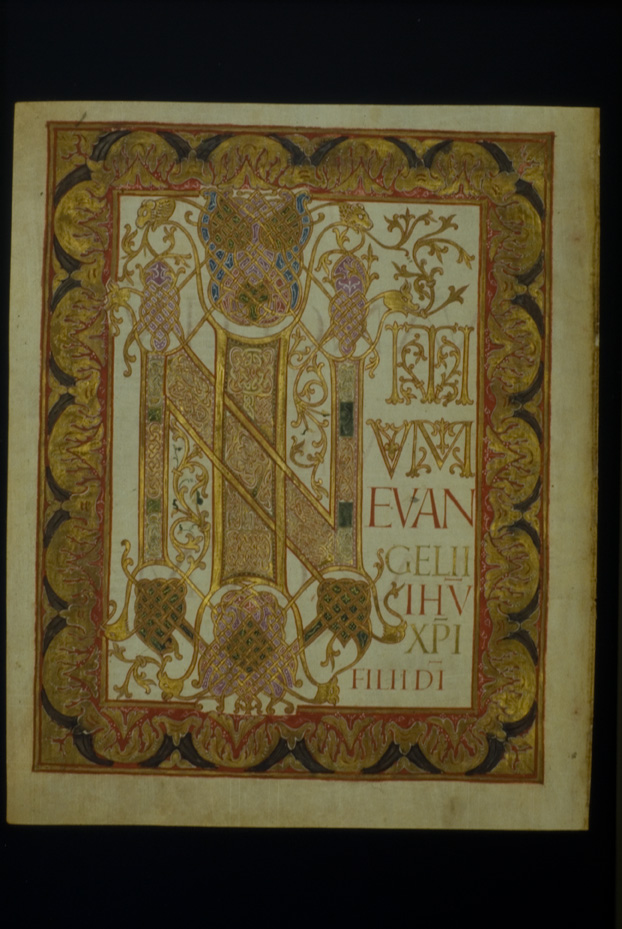 IN
ITI
VM
EVAN
GELII
IH̅V
XP̅I
FILII DI̅